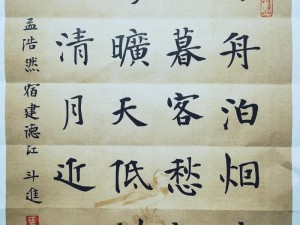 舟泊烟
暮客愁
曠天低
清月近
孟浩然宿建德江 斗進